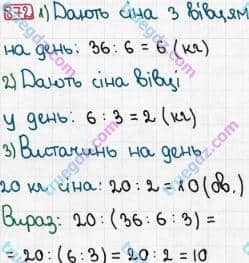 872 1) Дають сіна 3 вівцям
на день: 36 : 6 = 6 (кг)
2) Дають сіна вівці
у день: 6 : 3 = 2 (кг)
3) Вистачинь на день
20 кг сіна: 20 : 2 = 10 (ов.)
Вираз: 20 : (36 : 6 : 3) =
= 20 : (6 : 3) = 20 : 2 = 10